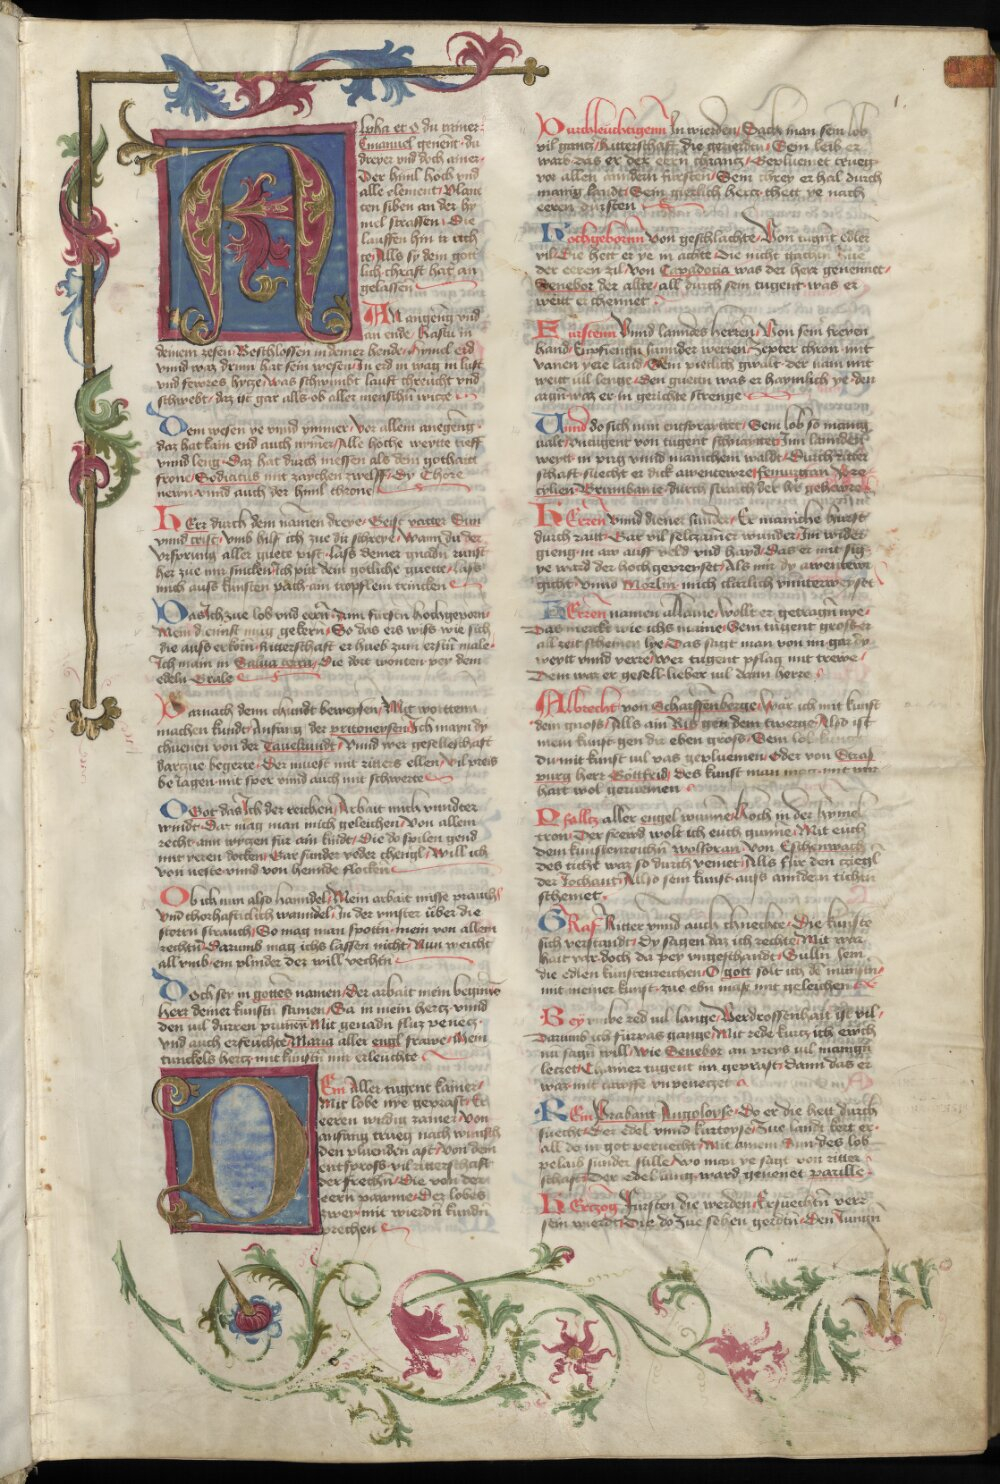 Alpha et O du rainer
Emanuel genent du
dreyer vnd doch ainer
Der himl hoch vnd
alle element Plane
ten siben an der hy
mel strassen Die
lauffen hin te rich
te Alls sy dein gott
lich chrafft hat an
gelassen
An angeng vnd
an ende Hastu in
deinem wesen Beschlossen in deiner hende Hymel erd
vnnd was drynn hat sein wesen In erd in wag in lufft
vnd fewres hytze was schwimbt laufft chreucht vnd
schwebt daz ist gar alls ob aller menschn witze
Dein wesen ye vnnd ymmer Vor allem anegeng
daz hat kain end auch nymer Alle hoche weytte tieff
vnnd leng Daz hat durch messen als dein gothait
frone Zodiacus mit zaychen zwelff Dy Chore
newn vnnd auch der himl throne
HErr durch dein namen dreye Geist vatter Sun
vnnd crist vmb hilf ich zue dir schreye Wann du der
vrsprung aller guete pist Lass deiner gnadn runst
her zue mir sincken Ich pitt dein gotliche guette Lass
mich auss kunsten pach ain tropflein trincken
Das Ich zue lob vnd eern Aim fursten hochgeporn
Mein dienst mug gebern So das ers wiss wie sich
die auss erkorn Ritterschafft er hueb zum ersten male
Ich main in Salua terra Die dort wonten pey dem
edeln Grale
Darnach denn chundt beweysen Mit wortten
machen kundt Anfang der pritoneysen Ich mayn dy
chuenen von der Tauelrundt Vnnd wer geselleschafft
darzue begerte Der muest mit ritters ellen vil preis
be lagen mit sper vnnd auch mit schwerte
O Got das Ich der reichen Arbait mich vnnder
windt Dar mag man mich geleichen Von allem
recht ann wytzen fur ain kindt Die do spilen gend
mit yeren docken Gar sunder rueder chengl Will ich
von neste vnnd von heunde flocken
Ob ich nun also hanndel Mein arbait misse prauch
vnd thorhafticlich wanndel In der vinster über die
storrn strauch So mag man spotn mein von allem
rechtn Darumb mag ichs lassen nicht Nun weicht
all vmb ein plinder der will vechtn
Doch sey in gottes namen Der arbait mein begunnen
Herr deiner kunstn samen Sä in mein hertz vnnd
den uil durren prunnen Mit genadn flus peneez
vnd auch erleuchte Maria aller engl frawe Mein
tunckels hertz mit kunstn mir erleuchte
Ein Aller tugent kamer
Mit lobe nye gepryst Er
eeren wirdig zamer Von
anfang trueg nach wunsch
den pluenden ast Von dem
entsprosss vil ritterschafft
der frechn Die von der
eern pawme Der lobes
zwey mit wierdn kundn
prechen
Durchleuchtigenn In wierden Sach man sein lob
vil gantz Ritterschafft die gezierden Sein leib er
warb das er der eern chrantz Gepluemet trueg
vor allen anndern fursten Sein chrey er hal durch
manig landt Sein zierlich hertz thett ye nach
eeren dursten
Hochgebornn Von geschlachte Von tugnt edler
vil Die hett er ye in achte Die nicht gachin zue
der eeren zil Von Capadocia was der herr genennet
Senebor der allte all durch sein tugent was er
weitt er chennet
Furstenn Vnnd lanndes herren Von sein freyen
hand Empfiengn sunnder werren Zepter chron mit
vanen yeie land Sein zierlich gwalt der nam mit
weitt uil lenge Den guetn was er haymlich ye den
argn waz er in gerichte strenge
Unnd do sich nun entsprayttet Sein lob so manig
ualt Ontugent von tugent schyat Im lannden
weytt in purg vnnd manichem waldt Durch ritter
schafft suecht er dick awentewre Femurgan Pre
cylien Brumbanie durch strach der lob gehewre
HErren Vnnd diener sunder Er maniche hurst
durch raitt Gar vil seltzamer wunder Im wider
gieng in aw auff veld vnd hayd Das er mit sig
ye ward der hoch gepreyset Als mir dy awentewr
gicht vnnd Morlin mich clarlich vnnterweyset
HErren namen allaine wollt er getragn nye
Das merckt wie ichs maine Sein tugent grosser
all zeit scheinen lye Das sagt man von im gar dy
weytt vnnd verre Wer tugent pflag mit trewe
Dem war er gesell lieber uil dann herre
Albrecht von Scharffenberge War ich mit kunst
dein gnoss Alls ain Ris gen dem twerge Also ist
mein kunst gen dir eben gross Sein lob kunst
du mit kunst uil pas gepluemen Oder von Stras
purg herr Gottfrid des kunst man mag mit war
hart wol geruemen
Pfalltz aller engel wunne Hoch in der hymel
tron Der frewd wolt ich euch gunne Mit euch
dem kunstenreichn wolfgran von Eschenwach
des ticht war so durch veinet Alls fur den cziegl
der Jochant Also sein kunst auss anndern tichtn
scheinet
GRaf Ritter vnnd auch chnechte Die kunste
sich verstandt Dy sagen daz ich rechte Mit war
hait wär doch da pey vngeschandt Sullin sein
die edlen kunstenreichen O gott solt ich de mainstn
mit meiner kunst zue ebn mass mit geleichen
Bey uibe red uil lange Verdrossenhait ist vil
Darumb ich furbas gange Mit rede kurtz ich ewch
nu sagn will Wie Senebor an preys uil manign
letzet Chainer tugent im geprast dann das er
waz mit tawffe vnpenetzet
REin Brabant Anzoloyse Do er die hett durch
suecht Der edel vnnd kurtoyse Zue landt kert er
all do in got peruecht Mit ainem sun des lob
pelaib sunder stille Wo man ye sagt von ritter
schafft Der edel iung ward genenet parille
HErtzog Fursten die werden Ersuechtn verr
sein wierdt Die do zue sehen gerdtn Den Jungn